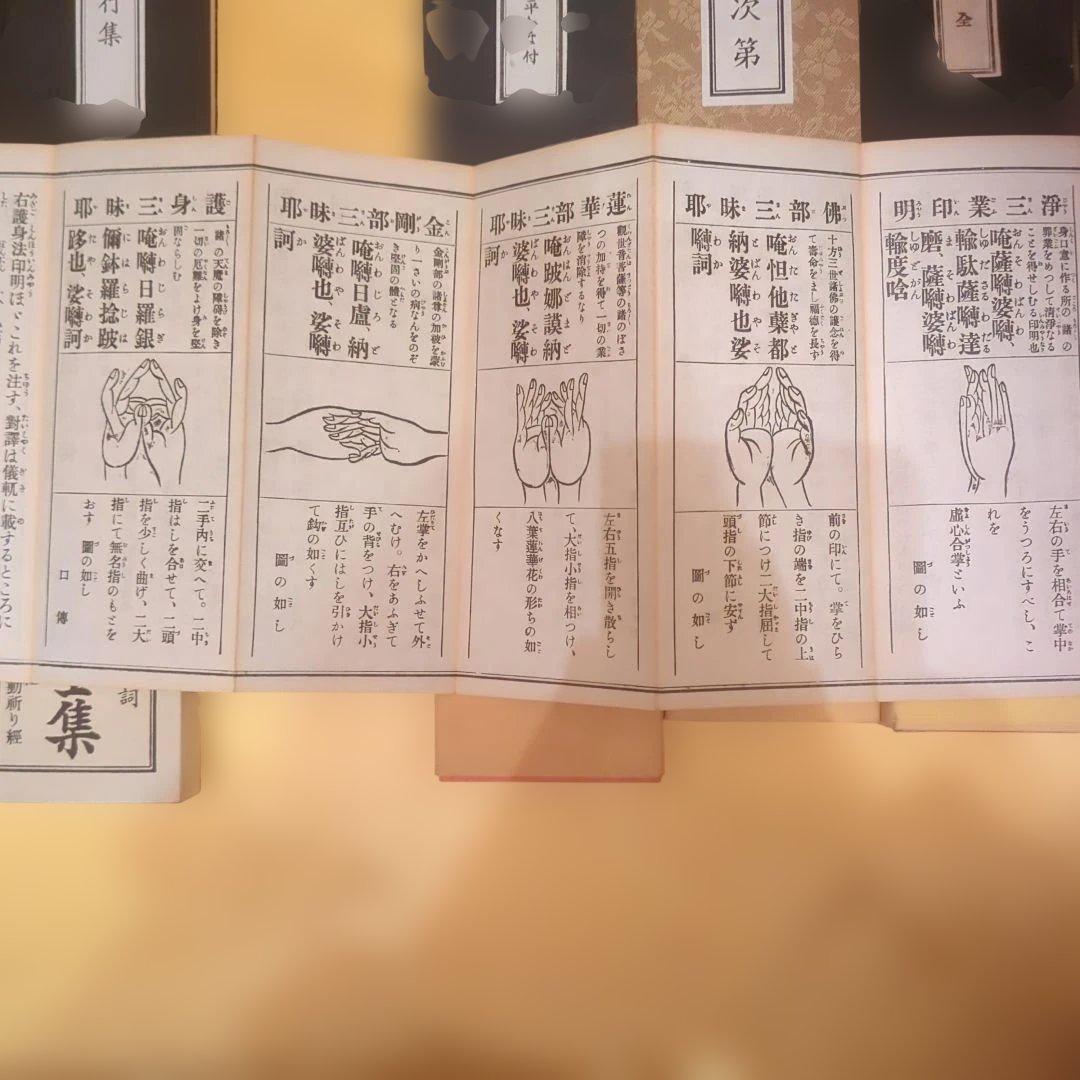 行集
次第
全
淨三業印明
身口意に作る所の諸の
罪業をめつして清淨なる
ことを得せしむる印明也
唵薩嚩婆嚩、
輸駄薩嚩達
磨、薩嚩婆嚩
輸度唅
左右の手を相合て掌中
をうつろにすべし、こ
れを
虛心合掌といふ
圖の如し
佛部三昧耶
十方三世諸佛の護念を得
て壽命をまし福德を長ず
唵怛他蘗都
納婆嚩也娑
嚩訶
前の印にて。掌をひら
き指の端を二中指の上
節につけ二大指屈して
頭指の下節に安ず
圖の如し
蓮華部三昧耶
觀世音菩薩等の諸のぼさ
つの加持を得て一切の業
障を消除するなり
唵跛娜謨納
婆嚩也、娑嚩
訶
左右五指を開き散らし
て、大指小指を相つけ、
八葉蓮華花の形ちの如
くなす
金剛部三昧耶
金剛部の諸尊の加被を蒙
り一さいの病なんをのぞ
き堅固の體となる
唵嚩日盧、納
婆嚩也、娑嚩
訶
左掌をかへしふせて外
へむけ。右をあふぎて
手の背をつけ、大指小
指互ひにはしを引かけ
て鈎の如くす
圖の如し
護身三昧耶
諸の天魔の障碍を除き
一切の厄難をよけ身を堅
固ならしむ
唵嚩日羅銀
儞鉢羅捻跛
跢也、娑嚩訶
二手內に交へて。二中
指はしを合せて、二頭
指を少しく曲げ、二大
指にて無名指のもとを
おす
圖の如し
口傳
右護身法印明ほゞこれを注す、對譯は儀軌に載するところに
詞
集
動祈り經